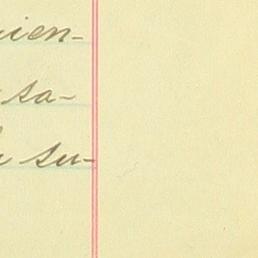 ien-
sa-
su-